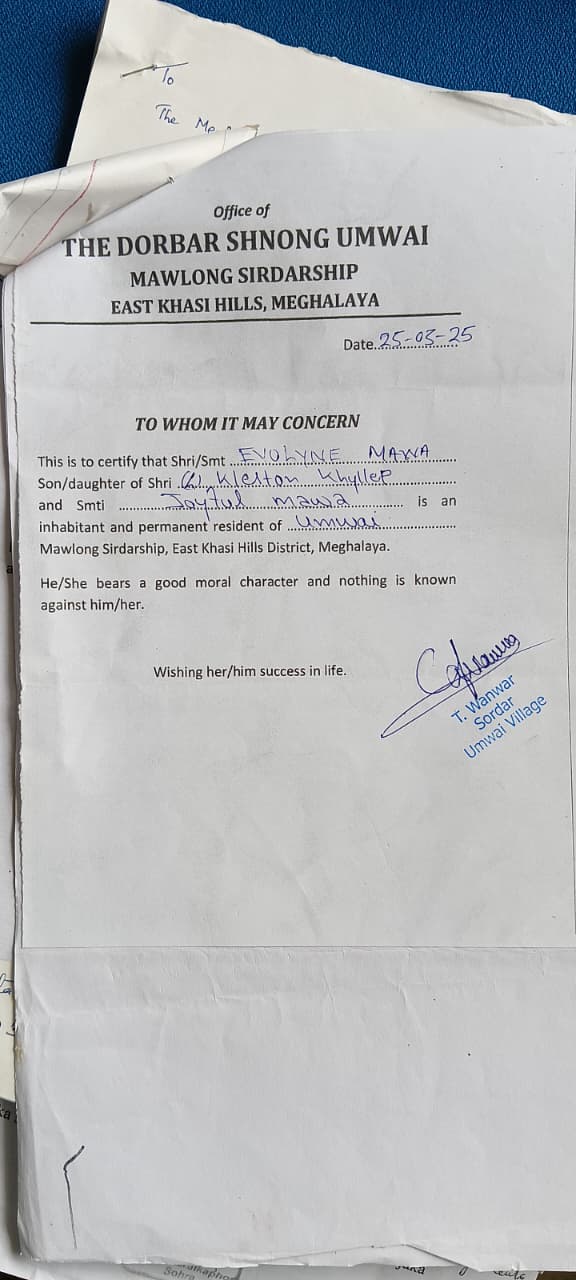 To
The Me
Office of
THE DORBAR SHNONG UMWAI
MAWLONG SIRDARSHIP
EAST KHASI HILLS, MEGHALAYA
Date..25-03-25
TO WHOM IT MAY CONCERN
This is to certify that Shri/Smt ..EVOLYNE MAWA
Son/daughter of Shri .. Kleston Khyllep
and Smti .... Joyful mawa .... is an
inhabitant and permanent resident of ..Umwai
Mawlong Sirdarship, East Khasi Hills District, Meghalaya.
He/She bears a good moral character and nothing is known
against him/her.
Wishing her/him success in life.
T. Wanwar
Sordar
Umwai Village
Sohra